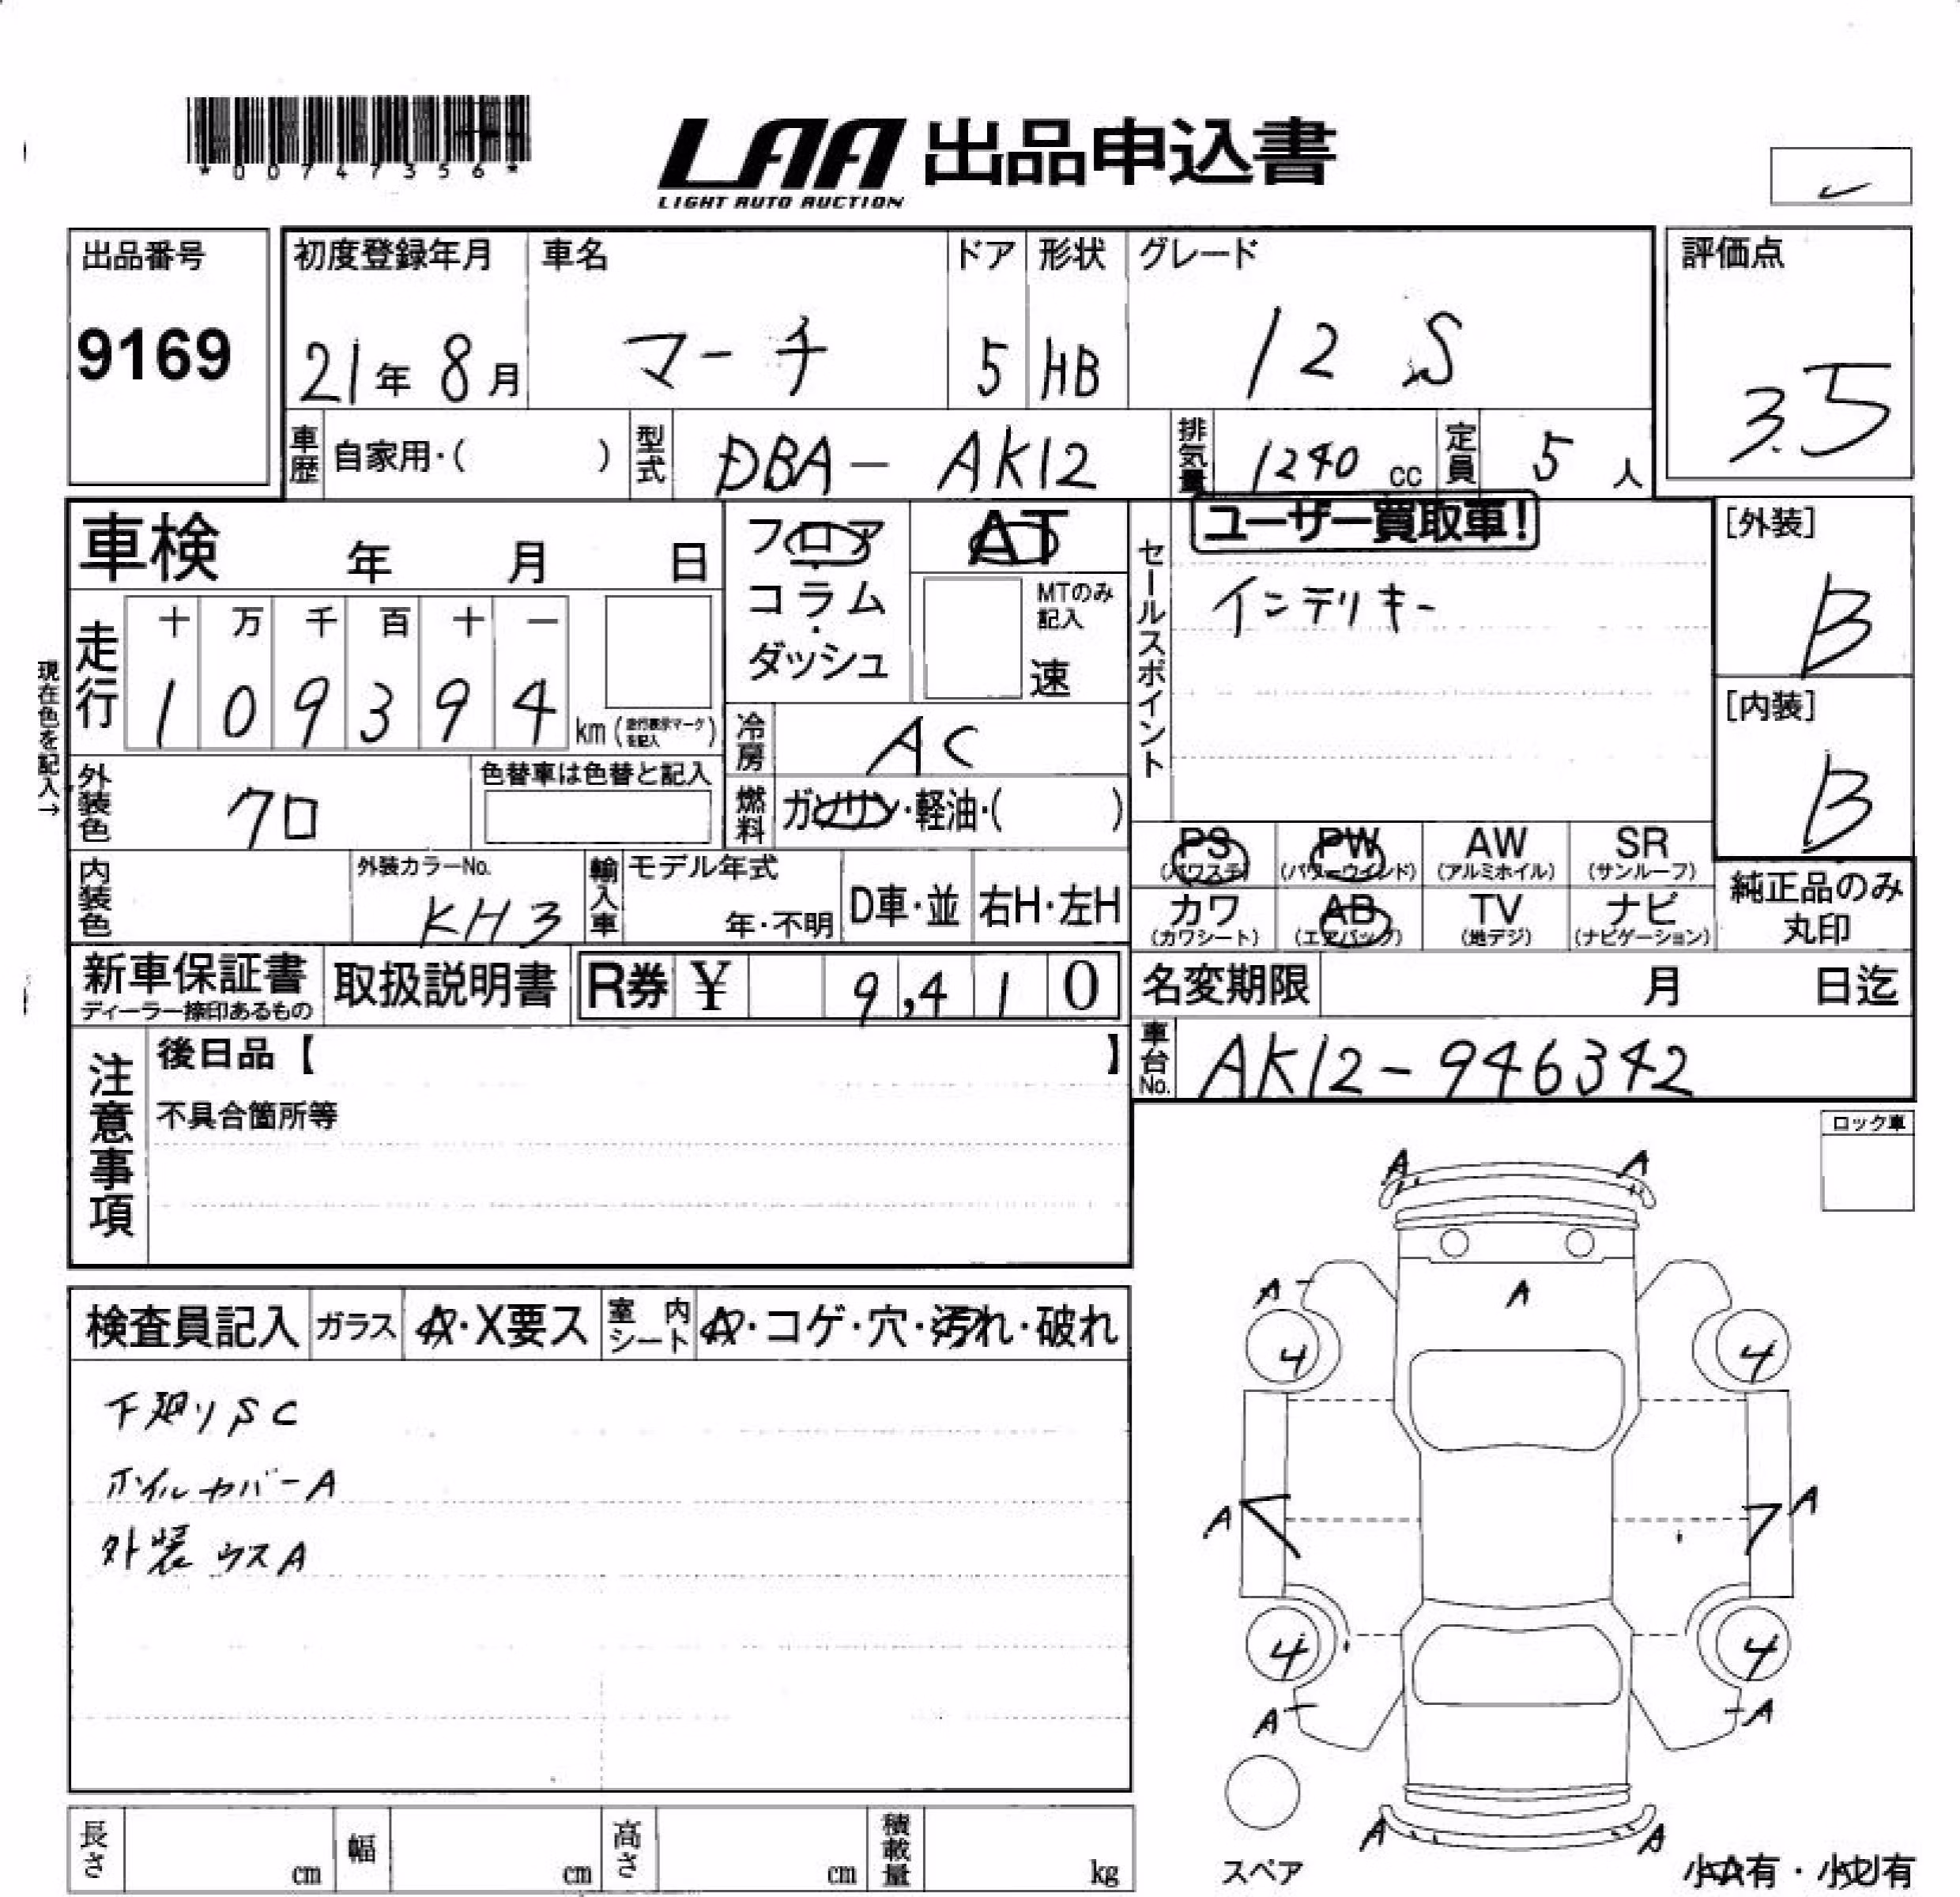 *00747356*
LAA 出品申込書
LIGHT AUTO AUCTION
出品番号 初度登録年月 車名 ドア 形状 グレード 評価点
9169 21年 8月 マーチ 5 HB 12S 3.5
車歴 自家用・( ) 型式 DBA- AK12 排気量 1240 cc 定員 5 人
車検 年 月 日 フロア AT ユーザー買取車! [外装]
コラム・ MTのみ記入 セールスポイント インテリキー B
ダッシュ 速
現在色を記入→
走行 十 万 千 百 十 一
1 0 9 3 9 4 km (走行表示マークを記入)
冷房 AC [内装]
B
外装色 クロ 色替車は色替と記入 燃料 ガソリン・軽油・( )
PS PW AW SR
(パワステ) (パワーウインド) (アルミホイル) (サンルーフ)
内装色 外装カラーNo. KH3 輸入車 モデル年式 年・不明 D車・並 右H・左H
カワ AB TV ナビ 純正品のみ
(カワシート) (エアバック) (地デジ) (ナビゲーション) 丸印
新車保証書 取扱説明書 R券 ¥ 9,410 名変期限 月 日迄
ディーラー捺印あるもの
注意事項 後日品【 】 車台No. AK12-946342
不具合箇所等
ロック車
A A
A A
4 4
検査員記入 ガラス A・X要ス 室内シート A・コゲ・穴・汚れ・破れ
下廻りSC
ホイルカバーA
外装ウスA
A A
4 4
A A
A A
長さ cm 幅 cm 高さ cm 積載量 kg
スペア
小A有・小U有